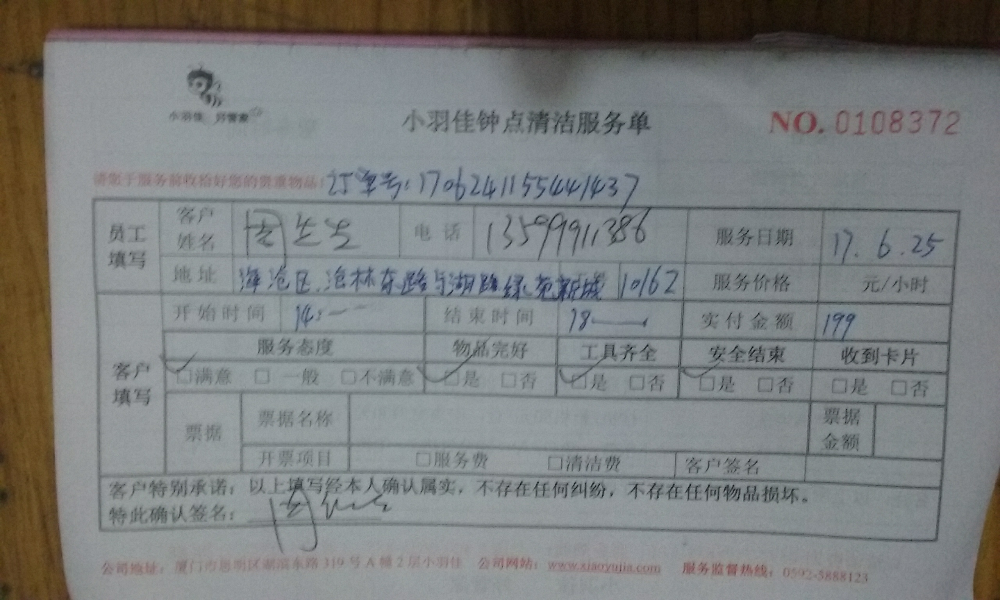 小羽佳 好管家
小羽佳钟点清洁服务单
NO. 0108372
请您于服务前收拾好您的贵重物品: 订单号:17062411554441437
员工填写 客户姓名 周先生 电话 13599911386 服务日期 17.6.25
地址 海沧区沧林东路与湖路绿苑新城 10162 服务价格 元/小时
客户填写 开始时间 14:—— 结束时间 18—— 实付金额 199
服务态度 物品完好 工具齐全 安全结束 收到卡片
☑满意 □一般 □不满意 ☑是 □否 ☑是 □否 ☑是 □否 □是 □否
票据 票据名称 票据金额
开票项目 □服务费 □清洁费 客户签名
客户特别承诺:以上填写经本人确认属实,不存在任何纠纷,不存在任何物品损坏。
特此确认签名:周
公司地址:厦门市思明区湖滨东路319号A幢2层小羽佳 公司网站:www.xiaoyujia.com 服务监督热线:0592-5888123